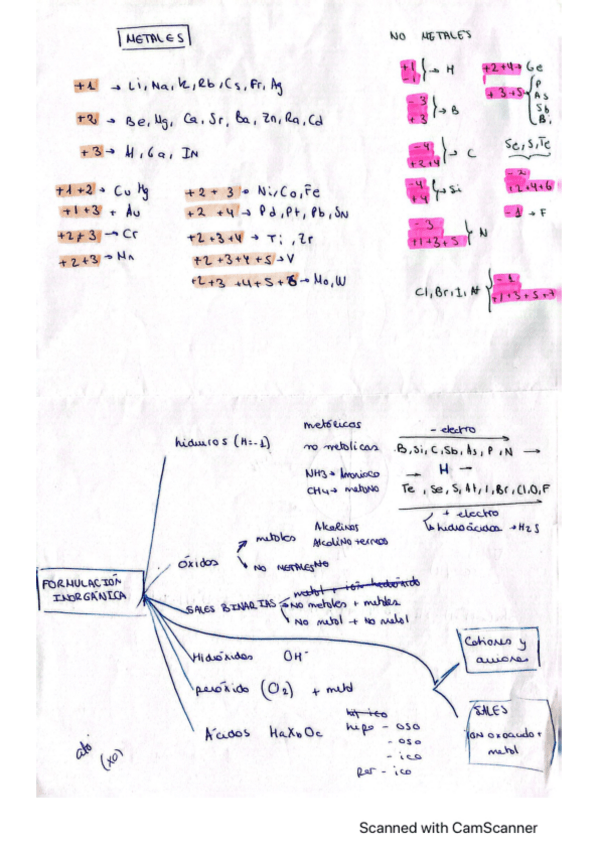 METALES
+1 → Li, Na, K, Rb, Cs, Fr, Ag
+2 → Be, Mg, Ca, Sr, Ba, Zn, Ra, Cd
+3 → Al, Ga, IN
+1+2 → Cu Hg
+1+3 → Au
+2+3 → Cr
+2+3 → Mn
+2 + 3 → Ni, Co, Fe
+2 +4 → Pd, Pt, Pb, SN
+2+3+4 → Ti, Zr
+2+3+4+5 → V
+2+3 +4+5+6 → Mo, W
NO METALES
+1
-1 } → H
-3
+3 } → B
-4
+2+4 } → C
-4
+4 } → Si
-3
+1+3+5 } N
Cl, Br, I, At { -1
+1+3+5+7
+2+4 → Ge
+3+5 → { P
As
Sb
Bi
Se, S, Te
-2
+2+4+6
-1 → F
FORMULACIÓN
INORGÁNICA
hidruros (H=-1)
metálicos
no metálicos
NH3 → Amoniaco
CH4 → metano
- electro
B, Si, C, Sb, As, P, N →
→ H →
Te, Se, S, At, I, Br, Cl, O, F
+ electro
hidroácidos → H2S
óxidos
metales
Alcalinos
Alcalino terreos
NO METALES
SALES BINARIAS
NO metales + metales
No metal + No metal
Hidróxidos OH-
peróxido (O2) + metal
Ácidos HaXbOc
hipo - oso
- oso
- ico
per - ico
Cationes y
aniones
SALES
ion oxoácido +
metal
ato
(XO)
Scanned with CamScanner